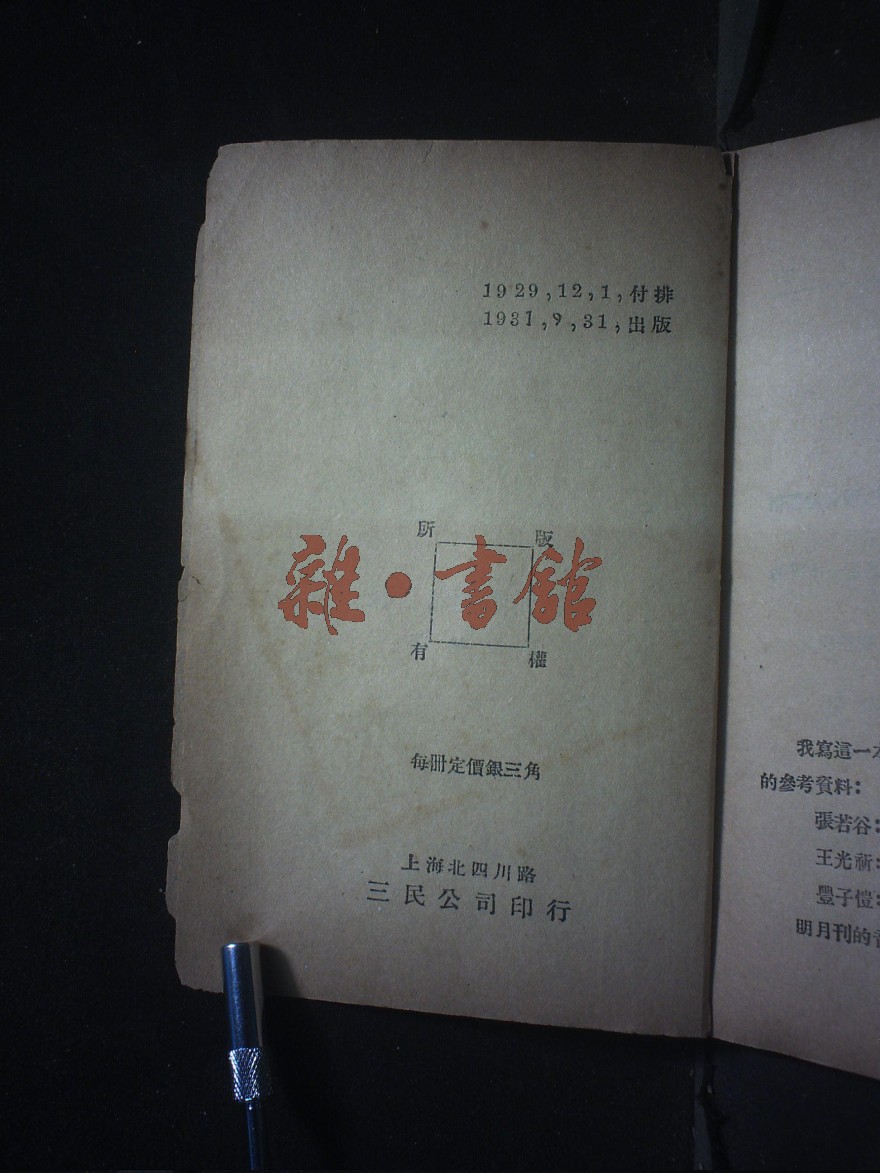 1929,12,1,付排
1931,9,31,出版
所 版
雜·書館
有 權
每冊定價銀三角
上海北四川路
三民公司印行
我寫這一
的參考資料：
張若谷：
王光祈：
豐子愷：
明月刊的